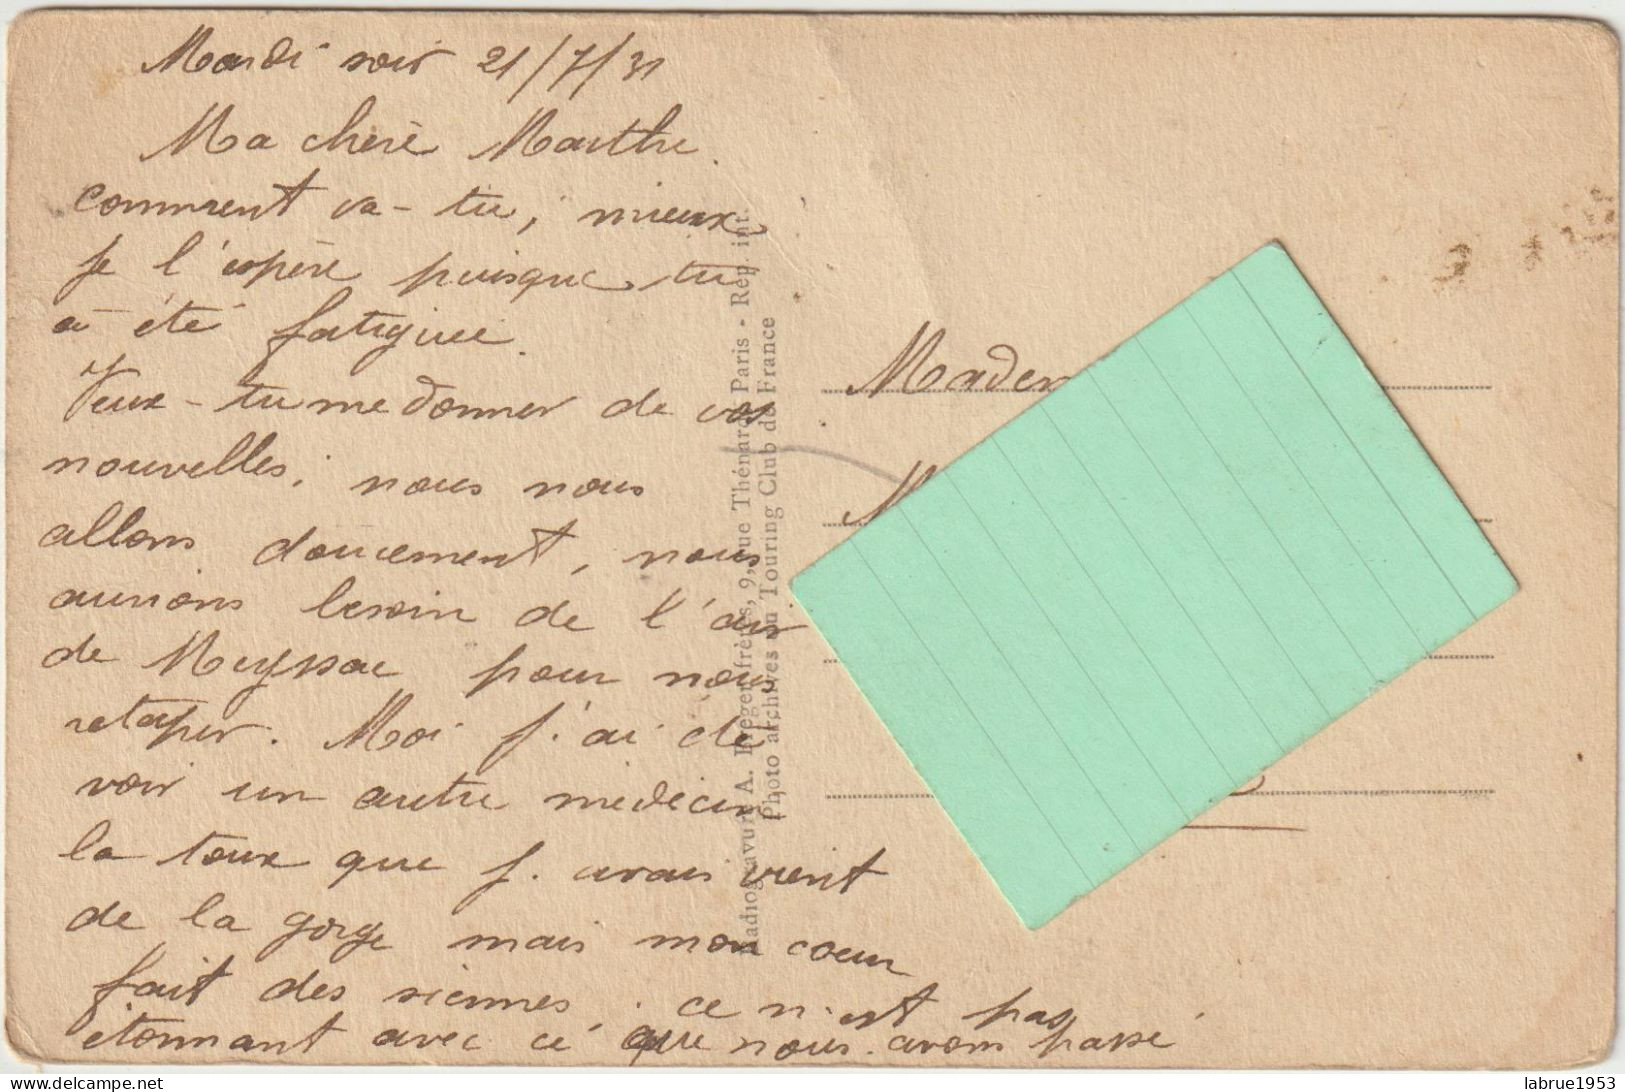 Mardi soir 21/7/31
Ma chère Marthe.
comment va-tu, mieux
je l'espère puisque tu
a été fatiguée.
Veux-tu me donner de vos
nouvelles, nous nous
allons doucement, nous
aurions besoin de l'air
de Meyssac pour nous
retaper. Moi j'ai été
voir un autre médecin
la toux que j'avais vient
de la gorge mais mon coeur
fait des siennes, ce n'est pas
étonnant avec ce que nous avons passé
Radiogravure A. frères, 9, rue Thénard, Paris - Rep. int.
Photo archives du Touring Club de France
Madem
M
delcampe.net
labrue1953